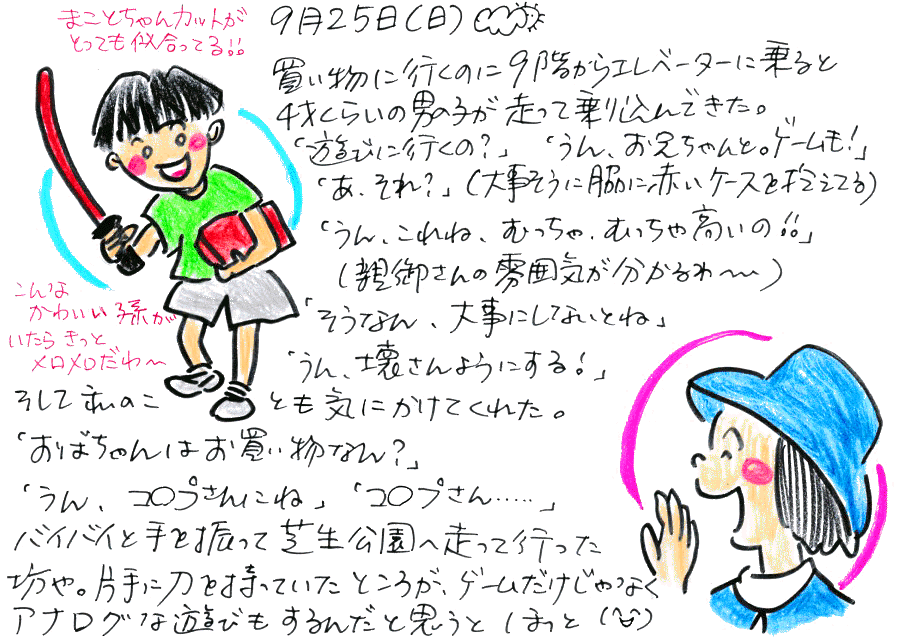 まことちゃんカットが
とっても似合ってる!!
9月25日(日)
買い物に行くのに9階からエレベーターに乗ると
4才くらいの男の子が走って乗り込んできた。
「遊びに行くの?」「うん、お兄ちゃんと。ゲームも!」
「あ、それ?」(大事そうに脇に赤いケースを抱えてる)
「うん、これね、むっちゃ、むっちゃ高いの!!」
(親御さんの雰囲気が分かるわ〜)
「そうなん、大事にしないとね」
「うん、壊さんようにする!」
こんな
かわいい孫が
いたらきっと
メロメロだわ〜
そして私のことも気にかけてくれた。
「おばちゃんはお買い物なん?」
「うん、コロプさんにね」「コロプさん……」
バイバイと手を振って芝生公園へ走って行った
坊や。片手に刀を持っていたところが、ゲームだけじゃなく
アナログな遊びもするんだと思うとほっと